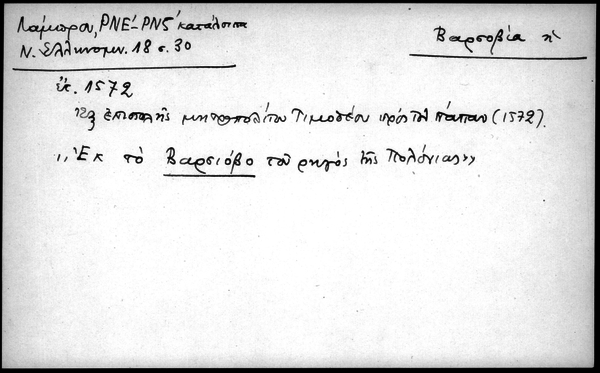 Λάμπρου, ΡΝΕ´-ΡΝΣ´ κατάλοιπα
Ν. Ἑλληνομν. 18 σ. 30
Βαρσοβία ἡ
ἔτ. 1572
ἐξ ἐπιστολῆς μητροπολίτου Τιμοθέου πρὸς τὸν πάπαν (1572).
„Ἐκ τὸ Βαρσιόβο τοῦ ρηγὸς τῆς Πολόνιας»